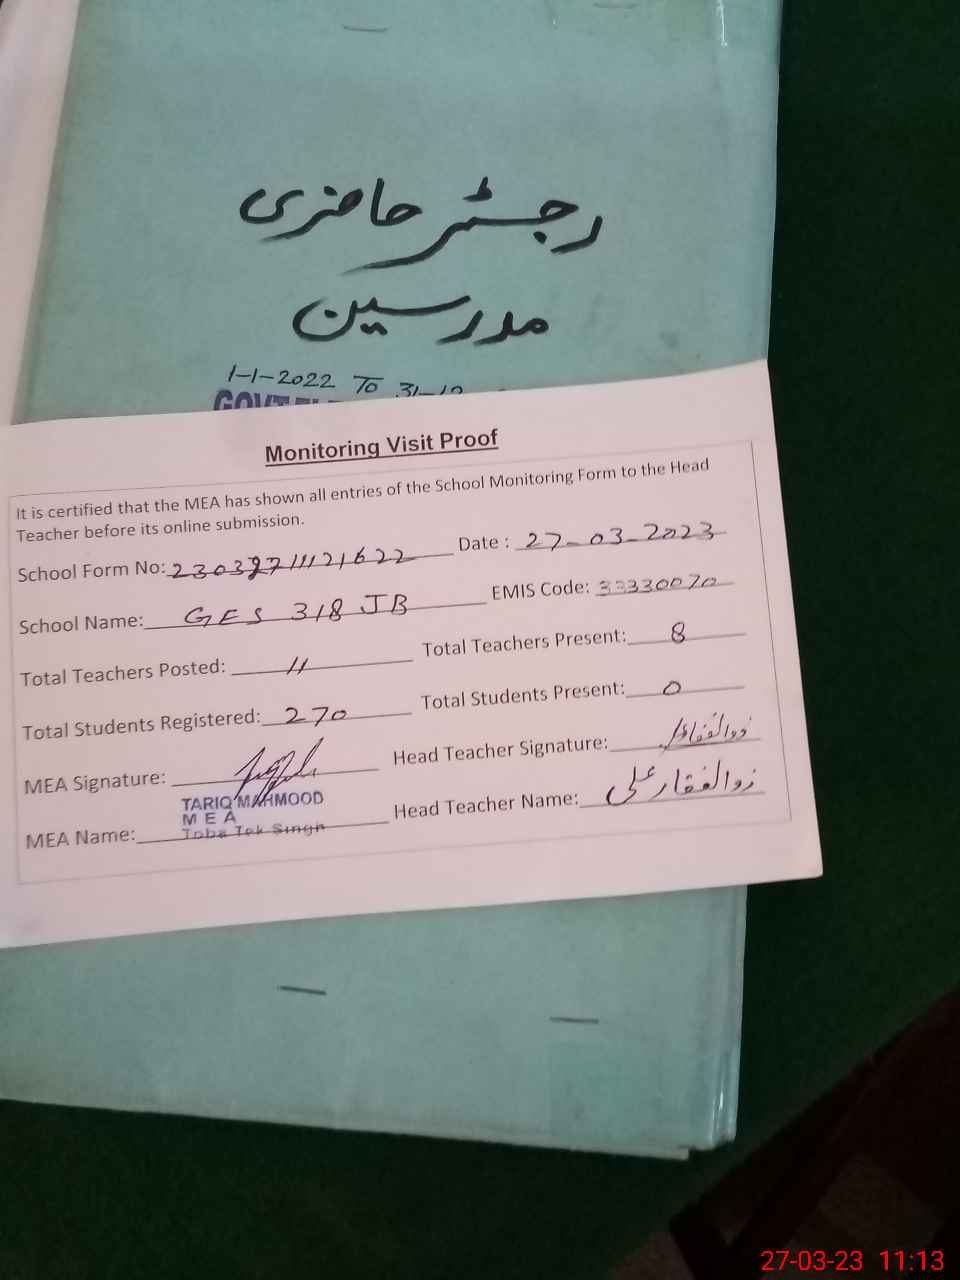 رجسٹر حاضری
مدرسین
1-1-2022 TO 31-12
GOVT
Monitoring Visit Proof
It is certified that the MEA has shown all entries of the School Monitoring Form to the Head
Teacher before its online submission.
School Form No: Date : 27-03-2023
School Name: GES 318 JB EMIS Code: 33330070
Total Teachers Posted: 11 Total Teachers Present: 8
Total Students Registered: 270 Total Students Present: 0
MEA Signature: Head Teacher Signature: ذوالفقار
TARIQ MAHMOOD
M E A
Toba Tek Singh
MEA Name: Head Teacher Name: ذوالفقار علی
27-03-23 11:13